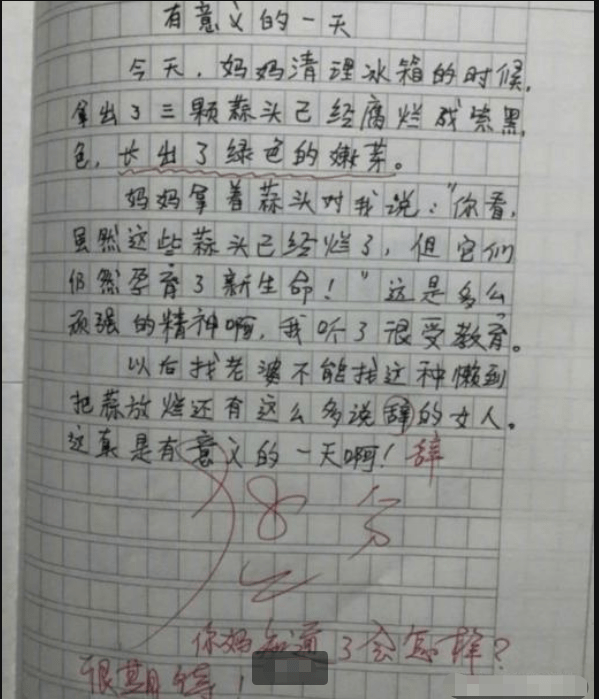 有意义的一天
今天,妈妈清理冰箱的时候,
拿出了三颗蒜头已经腐烂成紫黑
色,长出了绿色的嫩芽。
妈妈拿着蒜头对我说:"你看,
虽然这些蒜头已经烂了,但它们
仍然孕育了新生命!"这是多么
顽强的精神啊,我听了很受教育。
以后找老婆不能找这种懒到
把蒜放烂还有这么多说辞的女人。
这真是有意义的一天啊!辞
8分
你妈知道了会怎样?
很期待!